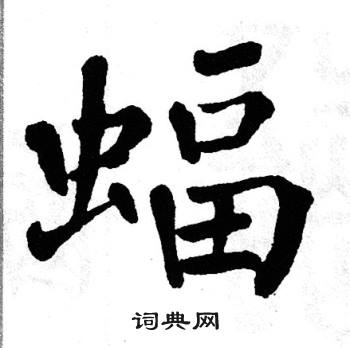 蝠
词典网